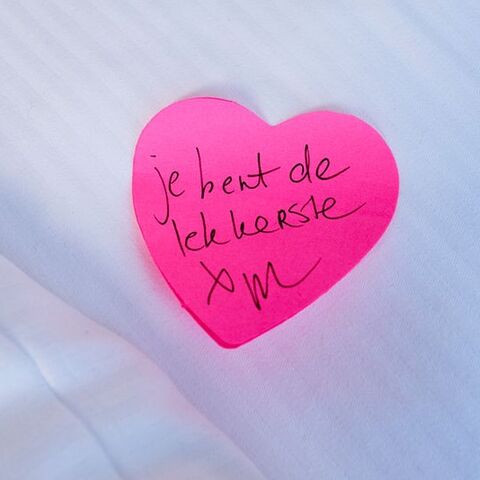 je bent de
lekkerste
x m